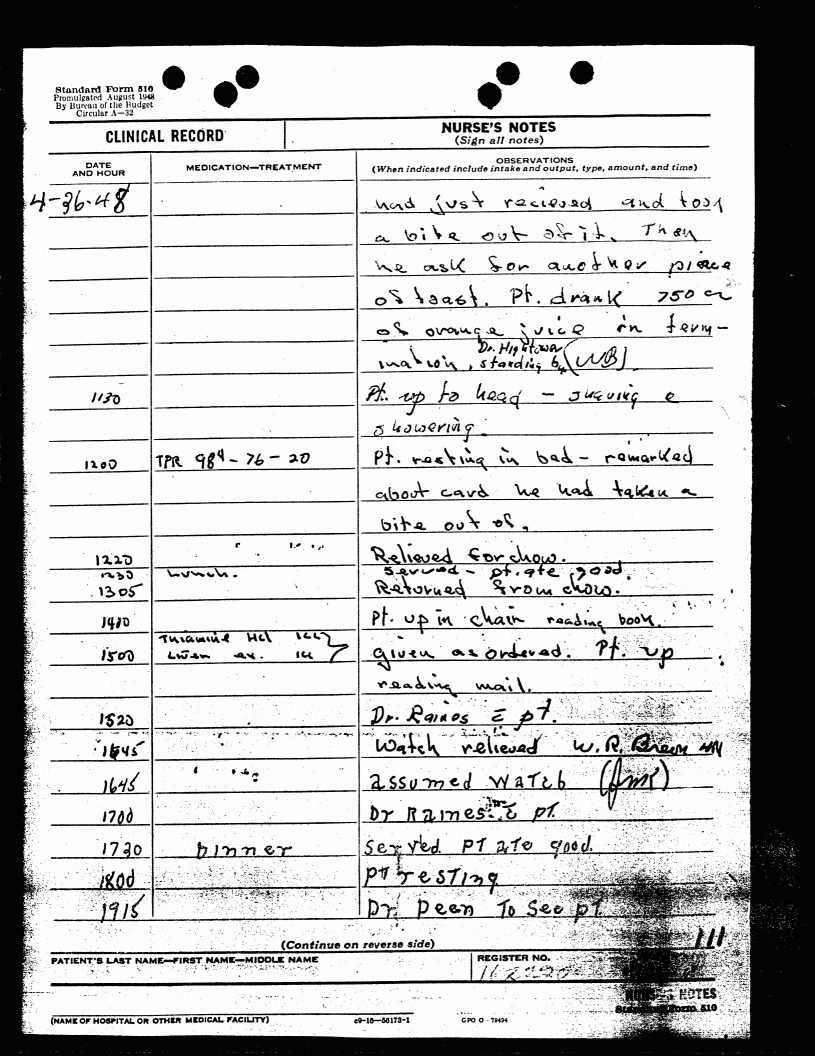 Standard Form 510
Promulgated August 1948
By Bureau of the Budget
Circular A—32
CLINICAL RECORD
NURSE'S NOTES
(Sign all notes)
DATE
AND HOUR
MEDICATION—TREATMENT
OBSERVATIONS
(When indicated include intake and output, type, amount, and time)
4-26-48 had just recieved and took
a bite out of it. Then
he ask for another piece
of toast. Pt. drank 750 cc
of orange juice in term-
ination, standing by (WB)
Dr. Hightower
1130 Pt. up to head — shaving c
showering.
1200 TPR 98⁴-76-20 Pt. resting in bed — remarked
about card he had taken a
bite out of.
1220 Relieved for chow.
1230 Lunch. Served — pt. ate good.
1305 Returned from chow.
1410 Pt. up in chair reading book.
Thiamine Hcl 1cc
1500 Liver ex. 1cc given as ordered. Pt. up
reading mail.
1520 Dr. Raines c̄ pt.
1545 Watch relieved W. R. Breen HN
1645 assumed watch
1700 Dr Raines c̄ pt.
1730 Dinner Served PT ate good.
1800 PT resting
1915 Dr. Deen To See pt
(Continue on reverse side)
111
PATIENT'S LAST NAME—FIRST NAME—MIDDLE NAME
REGISTER NO.
NURSE'S NOTES
Standard Form 510
(NAME OF HOSPITAL OR OTHER MEDICAL FACILITY)
c9—16—56173-1
GPO O - 79494